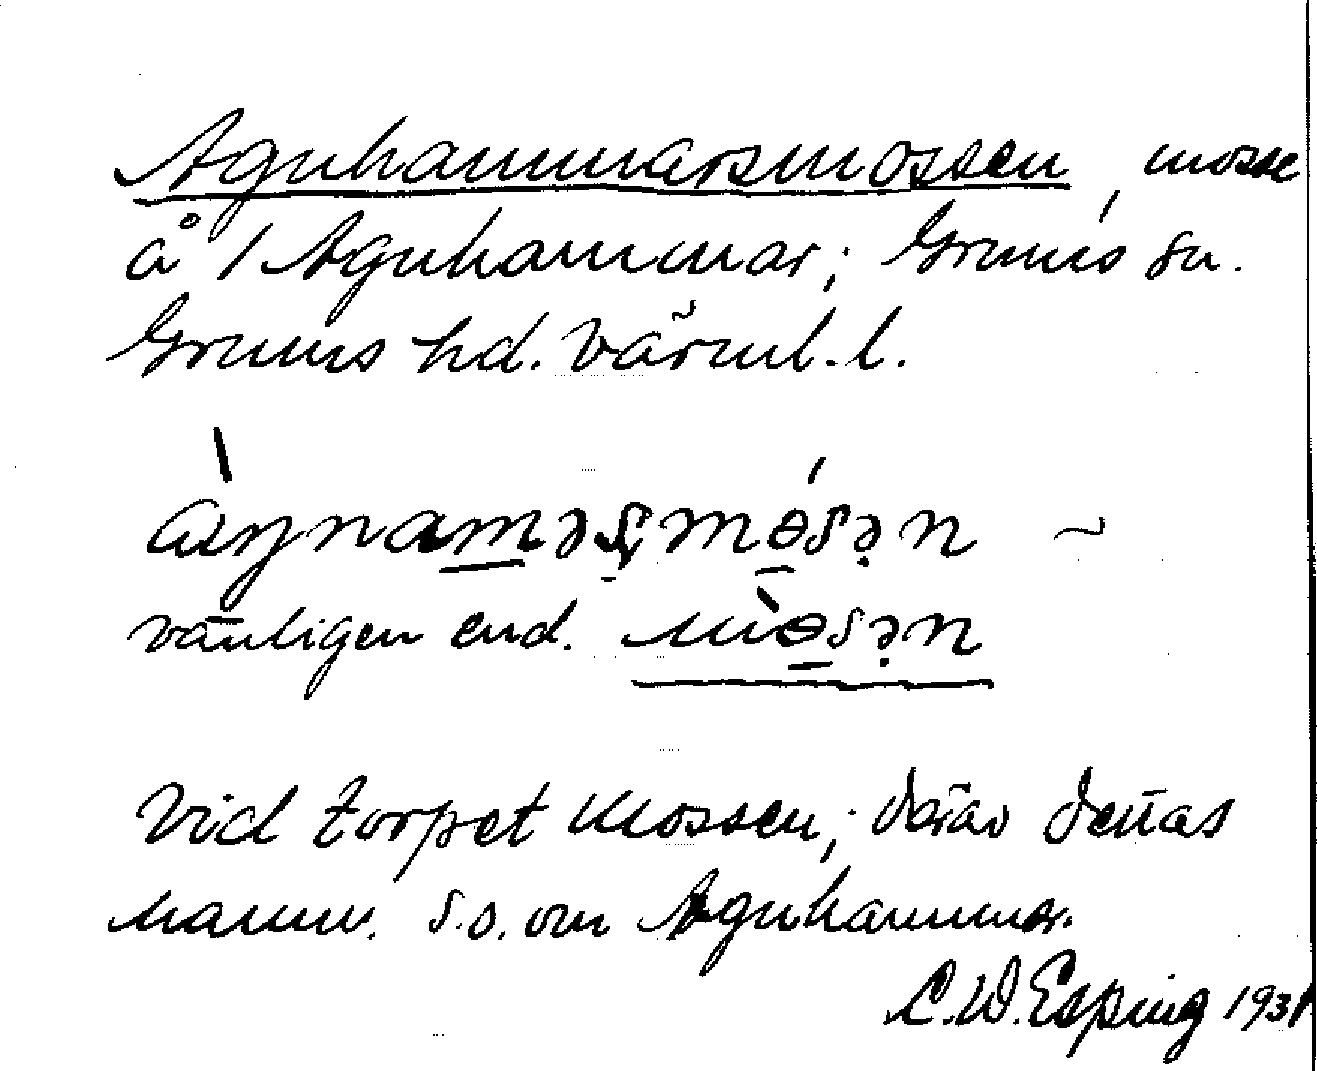 Agnhammarsmossen, mosse
å 1 Agnhammar; Grums sn.
Grums hd. Värml. l.
vanligen end.
Vid torpet Mossen; därav dettas
namn. S.o. om Agnhammar.
C.W. Esping 1931